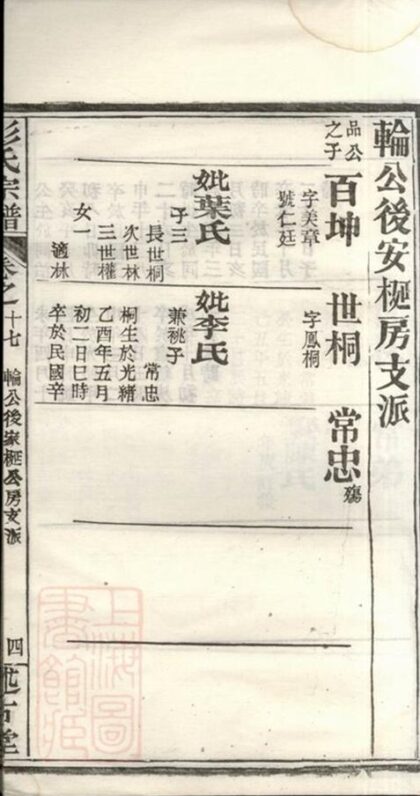 輪公後安梃房支派
品公之子
百坤
世桐
常忠
殤
字美章
號仁廷
字鳳桐
妣葉氏
妣李氏
子三
長世桐
次世林
三世權
女一
適林
兼祧子
常忠
桐生於光緒
乙酉年五月
初二日巳時
卒於民國辛
彭氏宗譜
卷之十七
輪公後安梃公房支派
四
述古堂
上海圖書館藏